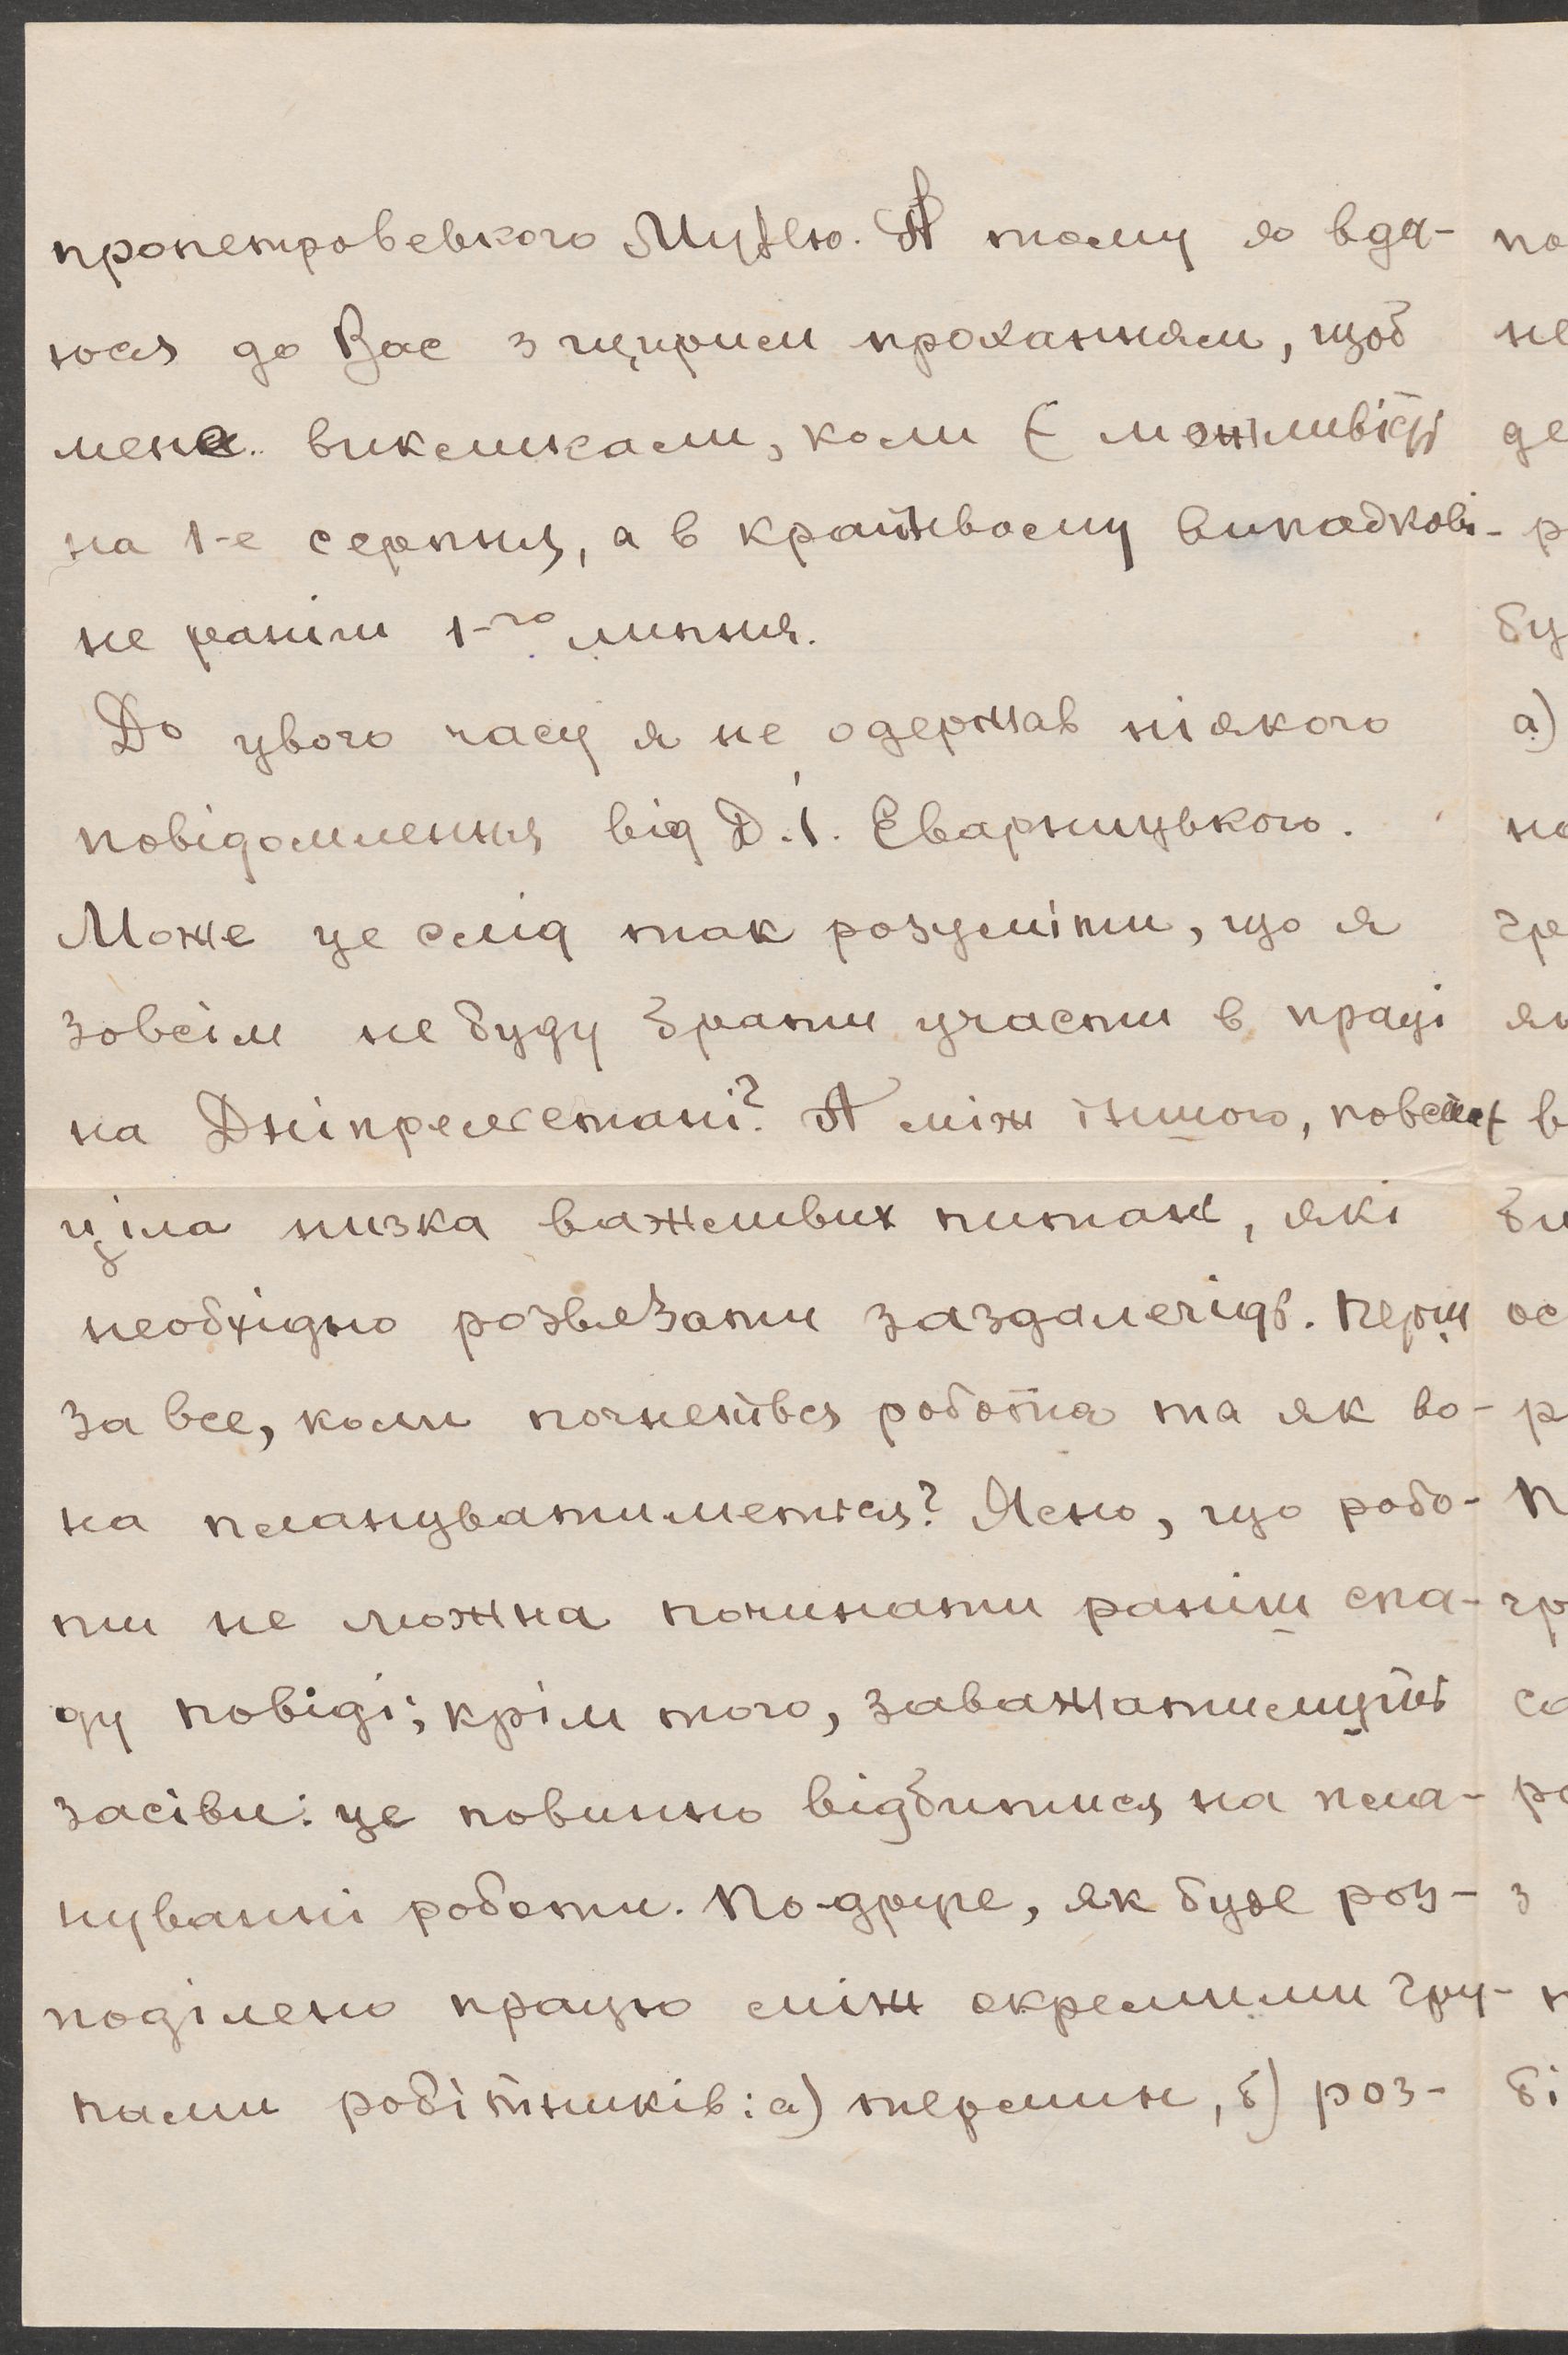 пропетровського Музею. А тому я вда-
юся до Вас з щирим проханням, щоб
мене викликали, коли є можливість
на 1-е серпня, а в крайньому випадкові-
не раніш 1-го липня.
До цього часу я не одержав ніякого
повідомлення від Д.І. Еварницького.
Може це слід так розуміти, що я
зовсім не буду брати участи в праці
на Дніпрельстані? А між іншого, повстає
ціла низка важливих питань, які
необхідно розвязати заздалегідь. Перш
за все, коли почнеться робота та як во-
на плануватиметься? Ясно, що робо-
ти не можна починати раніш спа-
ду повіді; крім того, заважатимуть
засіви: це повинно відбитися на пла-
нуванні роботи. По-друге, як буде роз-
поділено працю між окремими гру-
пами робітників: а) термин, б) роз-
по
не
де
р
бу
а)
на
гре
як
в
би
ос
р
П
гр
со
ро
з
п
бі